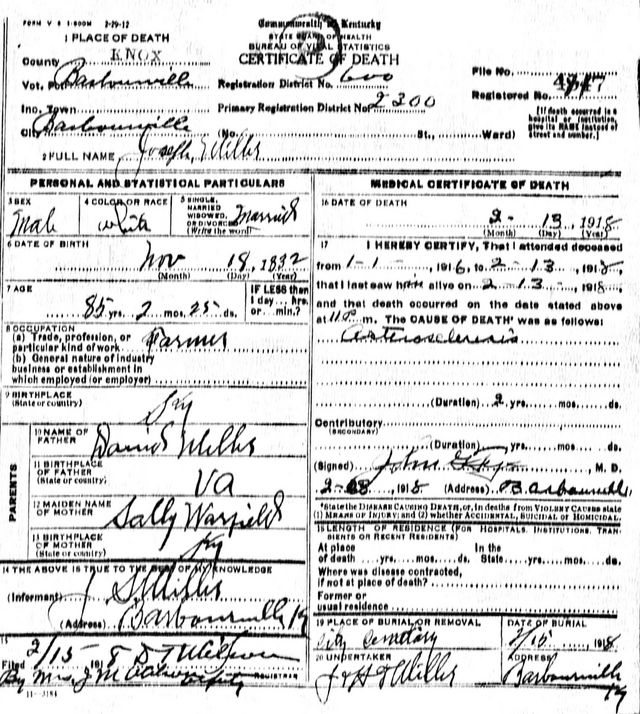 FORM V S 1-500M 2-29-12
Commonwealth of Kentucky
STATE BOARD OF HEALTH
BUREAU OF VITAL STATISTICS
CERTIFICATE OF DEATH
1 PLACE OF DEATH
County KNOX
Vot. Barbourville
Registration District No. 600
File No.
Inc. Town
Primary Registration District No. 2300
Registered No.
City Barbourville (No. St., Ward)
[If death occurred in a hospital or institution, give its NAME instead of street and number.]
2 FULL NAME Joseph Miller
PERSONAL AND STATISTICAL PARTICULARS
3 SEX Male
4 COLOR OR RACE white
5 SINGLE, MARRIED WIDOWED, OR DIVORCED (Write the word) Married
6 DATE OF BIRTH Nov 18, 1832
(Month) (Day) (Year)
7 AGE 85 yrs. 2 mos. 25 ds.
IF LESS than 1 day... hrs. or... min.?
8 OCCUPATION
(a) Trade, profession, or particular kind of work Farmer
(b) General nature of industry business or establishment in which employed (or employer)
9 BIRTHPLACE (State or country) Ky
PARENTS
10 NAME OF FATHER David Miller
11 BIRTHPLACE OF FATHER (State or country) VA
12 MAIDEN NAME OF MOTHER Sally Warfield
13 BIRTHPLACE OF MOTHER (State or country) Ky
14 THE ABOVE IS TRUE TO THE BEST OF MY KNOWLEDGE
(Informant) Miller
(Address) Barbourville Ky
15
Filed 2/15 1918
By Mrs. J M REGISTRAR
11-3184
MEDICAL CERTIFICATE OF DEATH
16 DATE OF DEATH
2- 13, 1918
(Month) (Day) (Year)
17 I HEREBY CERTIFY, That I attended deceased
from 1-1-, 1916, to 2-13, 1918,
that I last saw him alive on 2-13, 1918
and that death occurred on the date stated above
at 11 P.m. The CAUSE OF DEATH* was as follows:
Arterosclerosis
(Duration) 2 yrs. mos. ds.
Contributory
(SECONDARY)
(Duration) yrs. mos. ds.
(Signed) John, M. D.
1918 (Address) Barbourville
*State the DISEASE CAUSING DEATH, or, in deaths from VIOLENT CAUSES state
(1) MEANS OF INJURY; and (2) whether ACCIDENTAL, SUICIDAL or HOMICIDAL.
18 LENGTH OF RESIDENCE (FOR HOSPITALS, INSTITUTIONS, TRANSIENTS OR RECENT RESIDENTS)
At place of death yrs. mos. ds. In the State yrs. mos. ds.
Where was disease contracted,
if not at place of death?
Former or
usual residence
19 PLACE OF BURIAL OR REMOVAL City Cemetary
DATE OF BURIAL 2/15 1918
20 UNDERTAKER Miller
ADDRESS Barbourville Ky